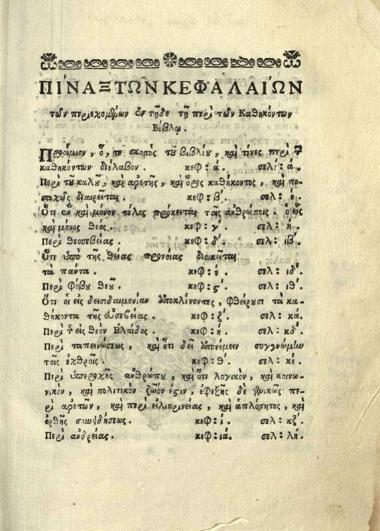 ΠΙΝΑΞ ΤΩΝ ΚΕΦΑΛΑΙΩΝ
τῶν περιεχομένων ἐν τῇδε τῇ περὶ τῶν Καθηκόντων
Βίβλῳ.
Προοίμιον, ὅ, τε σκοπὸς τοῦ βιβλίου, καὶ τίνες περὶ τ
καθηκόντων διέλαβον. κεφ: ά. σελ: ά.
Περὶ τοῦ καλοῦ, καὶ ἀρετῆς, καὶ ὅρος καθήκοντος, καὶ πο-
σαχῶς διαιρεῖται. κεφ: β΄. σελ: ή.
Ὅτι ἓν καὶ μόνον τέλος πρόκειται τοῖς ἀνθρώποις. ὁ εἷς
καὶ μόνος Θεός. κεφ: γ΄. σελ: ή.
Περὶ Θεοσεβείας. κεφ: δ΄. σελ: ιβ΄.
Ὅτι ὑπὸ τῆς θείας προνοίας διοικεῖται
τὰ πάντα. κεφ: έ. σελ: ιδ΄.
Περὶ φόβου Θεοῦ. κεφ: ς΄. σελ: ιθ΄.
Ὅτι οἱ εἰς δεισιδαιμονίαν ὑποκλίνοντες, φθείρουσι τὰ κα-
θήκοντα τῆς εὐσεβείας. κεφ: ζ΄. σελ: κά.
Περὶ τ εἰς Θεὸν Ἐλπίδος. κεφ: ή. σελ: κδ΄.
Περὶ ταπεινώσεως, καὶ ὅτι δεῖ ὑπονέμειν συγγνώμην
τοῖς ἐχθροῖς. κεφ: θ΄. σελ: κέ.
Περὶ ὑπεροχῆς ἀνθρώπου, καὶ ὅτι λογικὸν, καὶ κοινω-
νικὸν, καὶ πολιτικὸν ζῶον ἐστιν, ἐφεξῆς δὲ γενικῶς πε-
ρὶ ἀρετῶν, καὶ περὶ εἰλικρινείας, καὶ ἁπλότητος, καὶ
ὀρθῆς συνειδήσεως. κεφ: ί. σελ: κζ΄.
Περὶ ἀνδρείας. κεφ: ιά. σελ: λή.